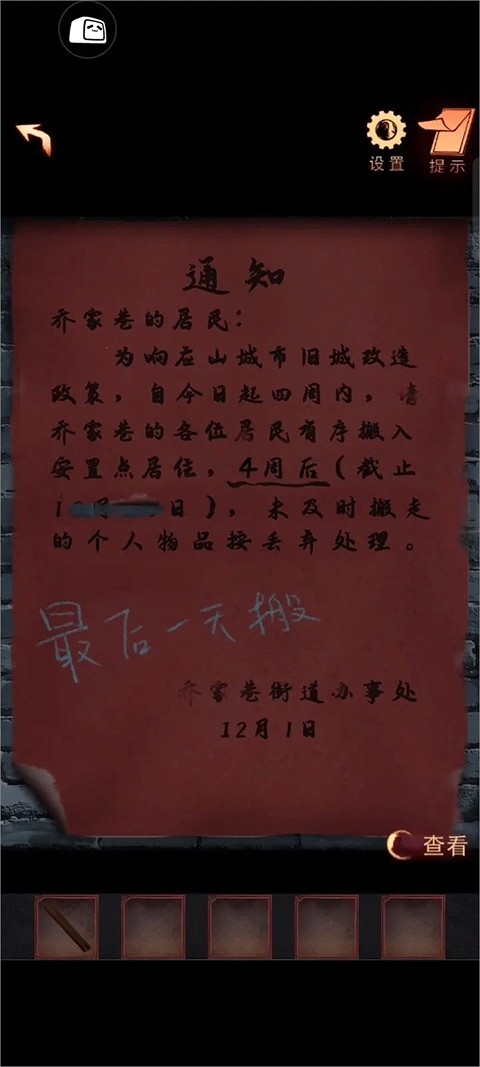 设置
提示
通知
乔家巷的居民：
为响应山城市旧城改造
政策，自今日起四周内，请
乔家巷的各位居民有序搬入
安置点居住，4周后（截止
日），未及时搬走
的个人物品按丢弃处理。
最后一天搬
乔家巷街道办事处
12月1日
查看